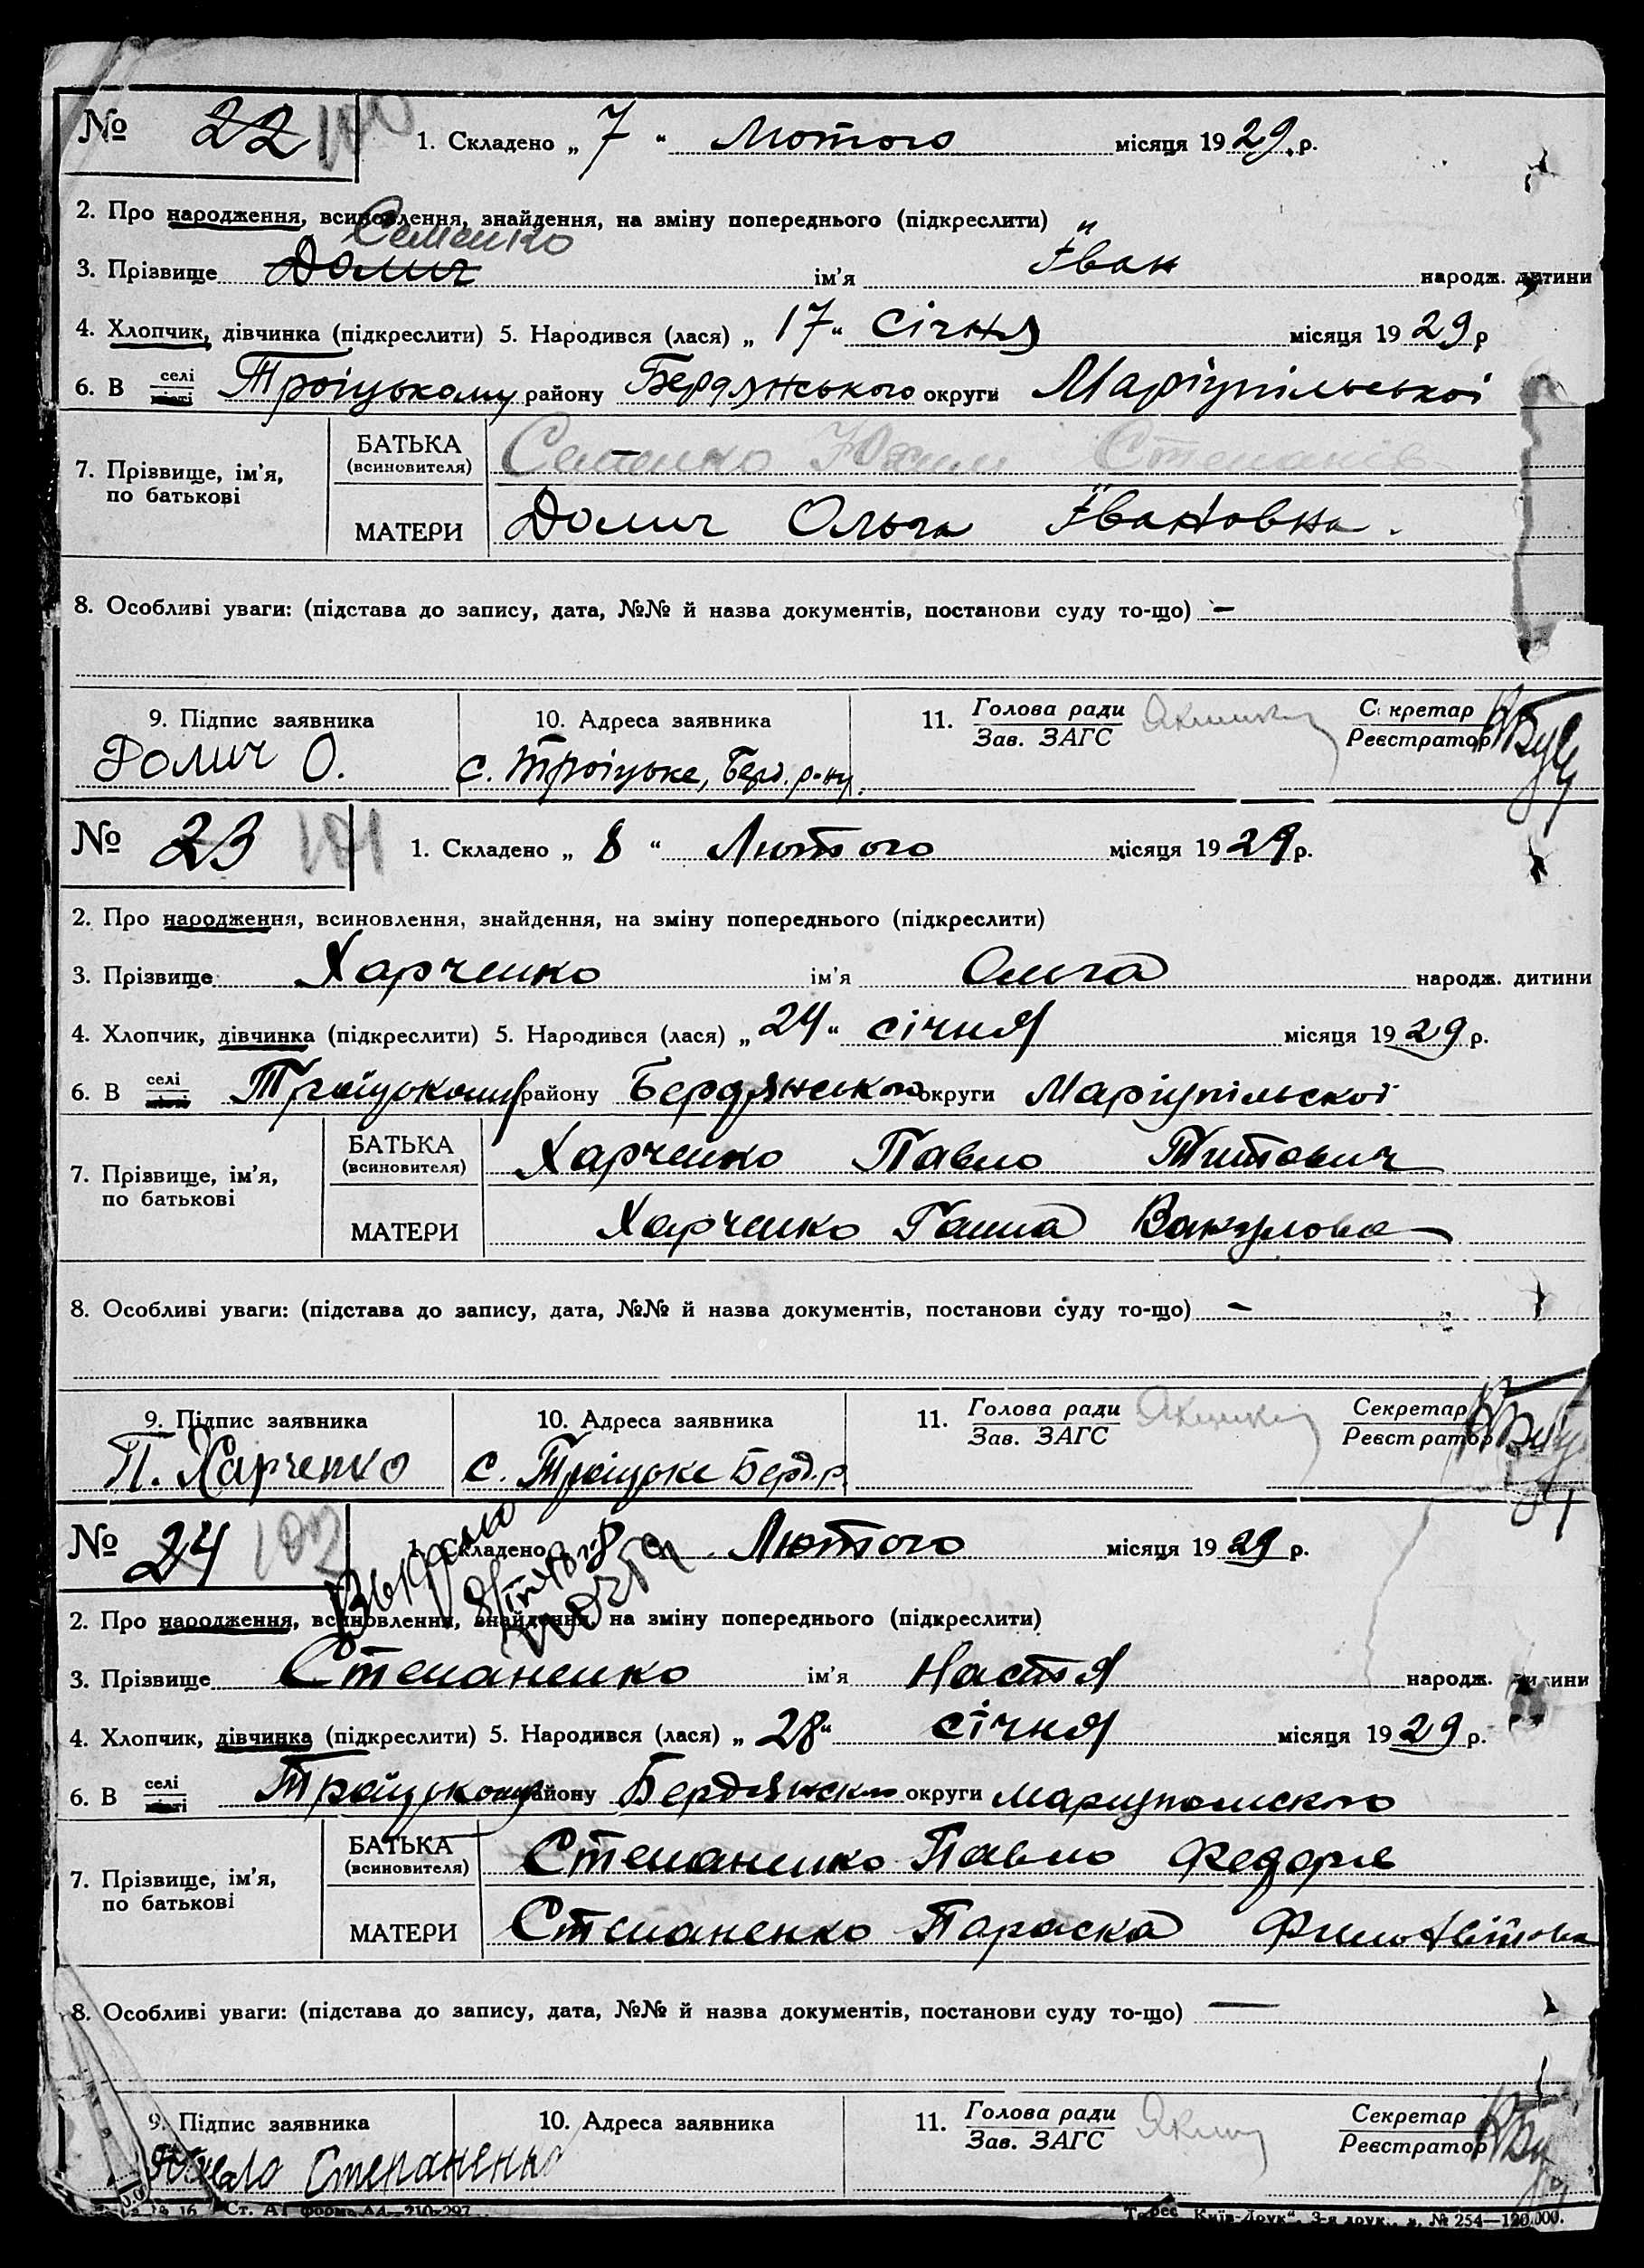 № 22 100 1. Складено „ 7 “ Лютого місяця 1929 р.
2. Про народження, всиновлення, знайдення, на зміну попереднього (підкреслити)
Семенко
3. Прізвище Долич ім’я Іван народж. дитини
4. Хлопчик, дівчинка (підкреслити) 5. Народився (лася) „ 17 “ січня місяця 1929 р
6. В селі місті Троіцькому району Бердянського округи Маріупільської
7. Прізвище, ім’я, по батькові
БАТЬКА (всиновителя) Семенко Юхим Степанів
МАТЕРИ Долич Ольга Івановна.
8. Особливі уваги: (підстава до запису, дата, №№ й назва документів, постанови суду то-що) –
9. Підпис заявника 10. Адреса заявника 11. Голова ради Зав. ЗАГС Секретар Реєстратор
Долич О. с. Троіцьке, Берд. р-ну.
№ 23 101 1. Складено „ 8 “ Лютого місяця 1929 р.
2. Про народження, всиновлення, знайдення, на зміну попереднього (підкреслити)
3. Прізвище Харченко ім’я Ольга народж. дитини
4. Хлопчик, дівчинка (підкреслити) 5. Народився (лася) „ 24 “ січня місяця 1929 р.
6. В селі місті Троїцькому району Бердянського округи Маріупільскої
7. Прізвище, ім’я, по батькові
БАТЬКА (всиновителя) Харченко Павло Титович
МАТЕРИ Харченко Ганна Вакулова
8. Особливі уваги: (підстава до запису, дата, №№ й назва документів, постанови суду то-що) –
9. Підпис заявника 10. Адреса заявника 11. Голова ради Зав. ЗАГС Секретар Реєстратор
П. Харченко с. Троїцьке Берд. р.
№ 24 102 1. Складено 8 Лютого місяця 1929 р.
2. Про народження, всиновлення, знайдення, на зміну попереднього (підкреслити)
3. Прізвище Степаненко ім’я Настя народж. дитини
4. Хлопчик, дівчинка (підкреслити) 5. Народився (лася) „ 28 “ січня місяця 1929 р.
6. В селі місті Троїцькому району Бердянского округи
7. Прізвище, ім’я, по батькові
БАТЬКА (всиновителя) Степаненко Павло Федорів
МАТЕРИ Степаненко Параска
8. Особливі уваги: (підстава до запису, дата, №№ й назва документів, постанови суду то-що) —
9. Підпис заявника 10. Адреса заявника 11. Голова ради Зав. ЗАГС Секретар Реєстратор
Павло Степаненко
Ст. А4 форма А4—210×297 Трест „Київ-Друк“, 3-я друк., № 254—120.000.